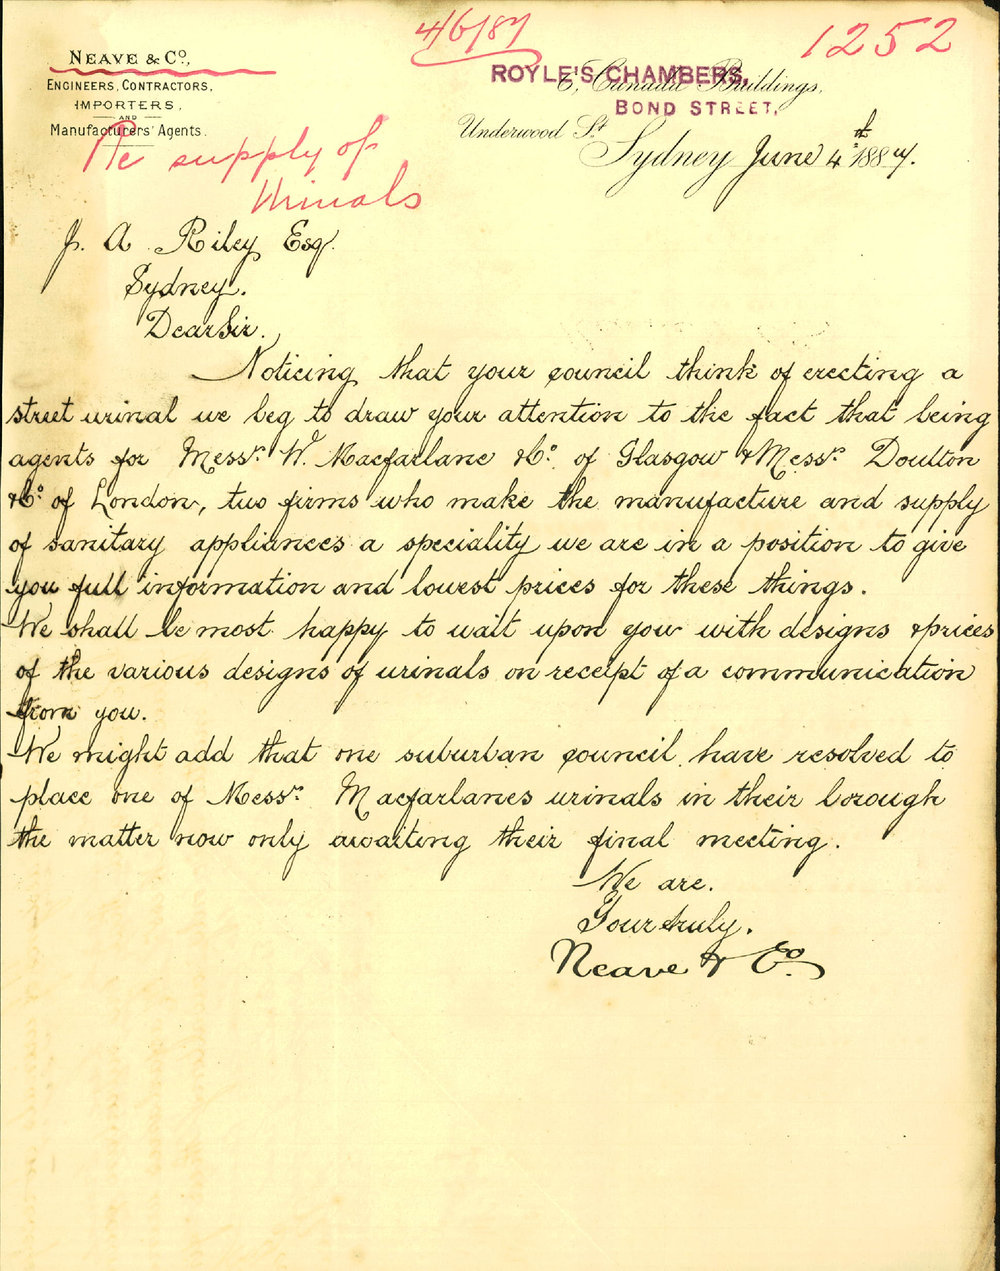 4/6/87
1252
NEAVE & Co.,
ENGINEERS, CONTRACTORS,
IMPORTERS,
AND
Manufacturers' Agents.
ROYLE'S CHAMBERS,
6, Cunadu Buildings,
BOND STREET,
Underwood St
Sydney June 4th 1887.
Re supply of
Urinals
J. A. Riley Esq.
Sydney.
Dear Sir.
Noticing that your council think of erecting a
street urinal we beg to draw your attention to the fact that being
agents for Messrs. W. Macfarlane & Co. of Glasgow & Messrs. Doulton
& Co. of London, two firms who make the manufacture and supply
of sanitary appliances a speciality we are in a position to give
you full information and lowest prices for these things.
We shall be most happy to wait upon you with designs & prices
of the various designs of urinals on receipt of a communication
from you.
We might add that one suburban council have resolved to
place one of Messrs. Macfarlanes urinals in their borough
the matter now only awaiting their final meeting.
We are.
Yours truly.
Neave & Co.